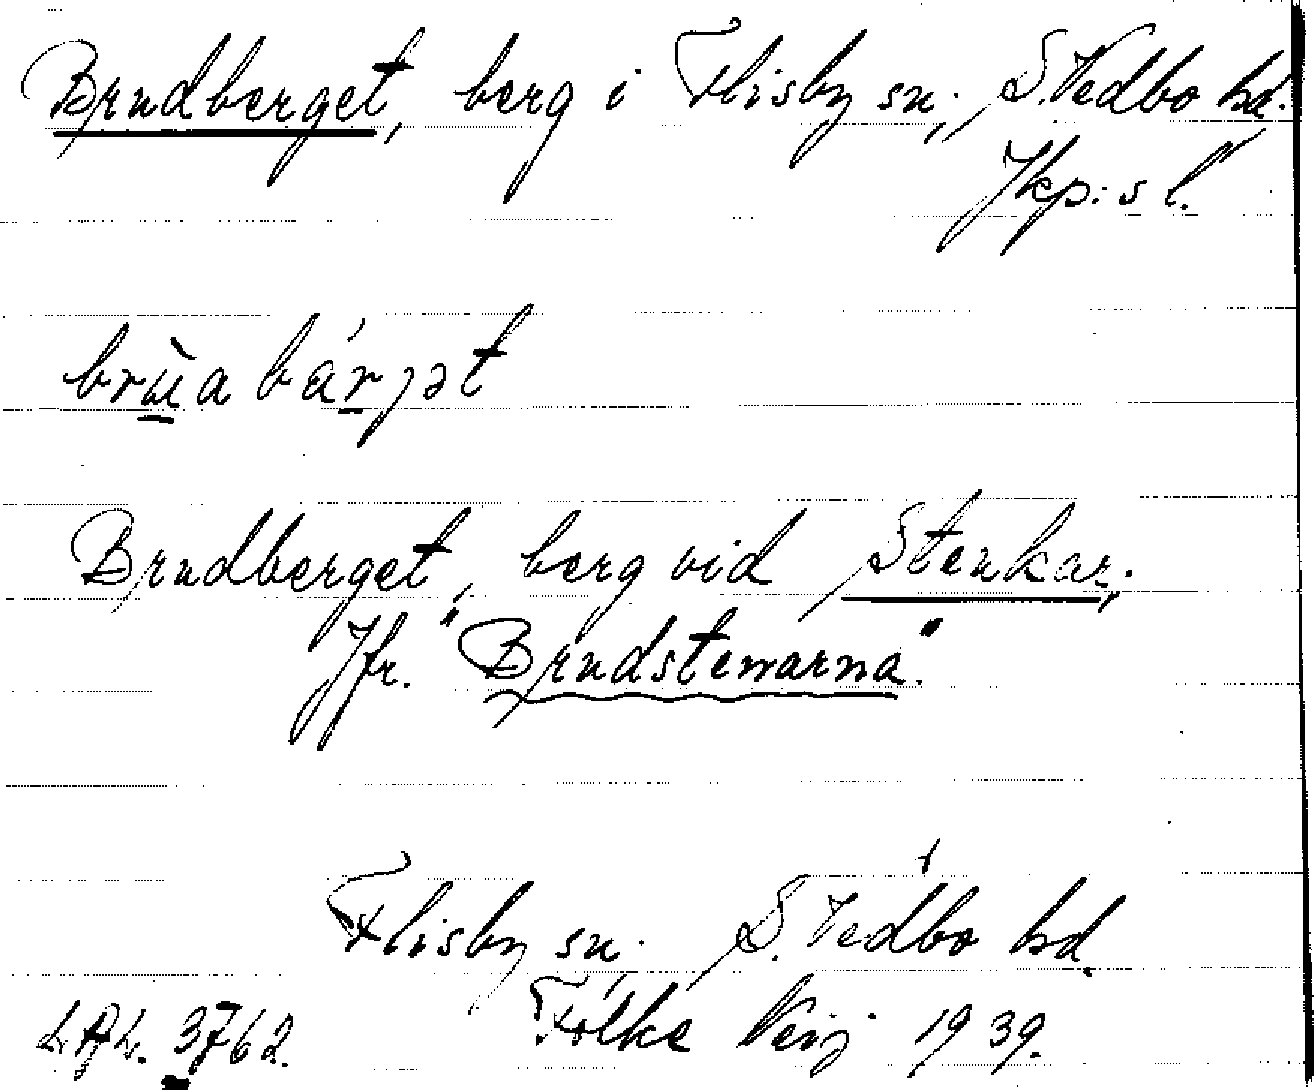 Brudberget, berg i Flisby sn, S. Vedbo hd.
Jkp:s l.
brùabárjət
Brudberget, berg vid Stenkar,
Jfr. "Brudstenarna."
Flisby sn. S. Vedbo hd.
3762. Folke 1939.